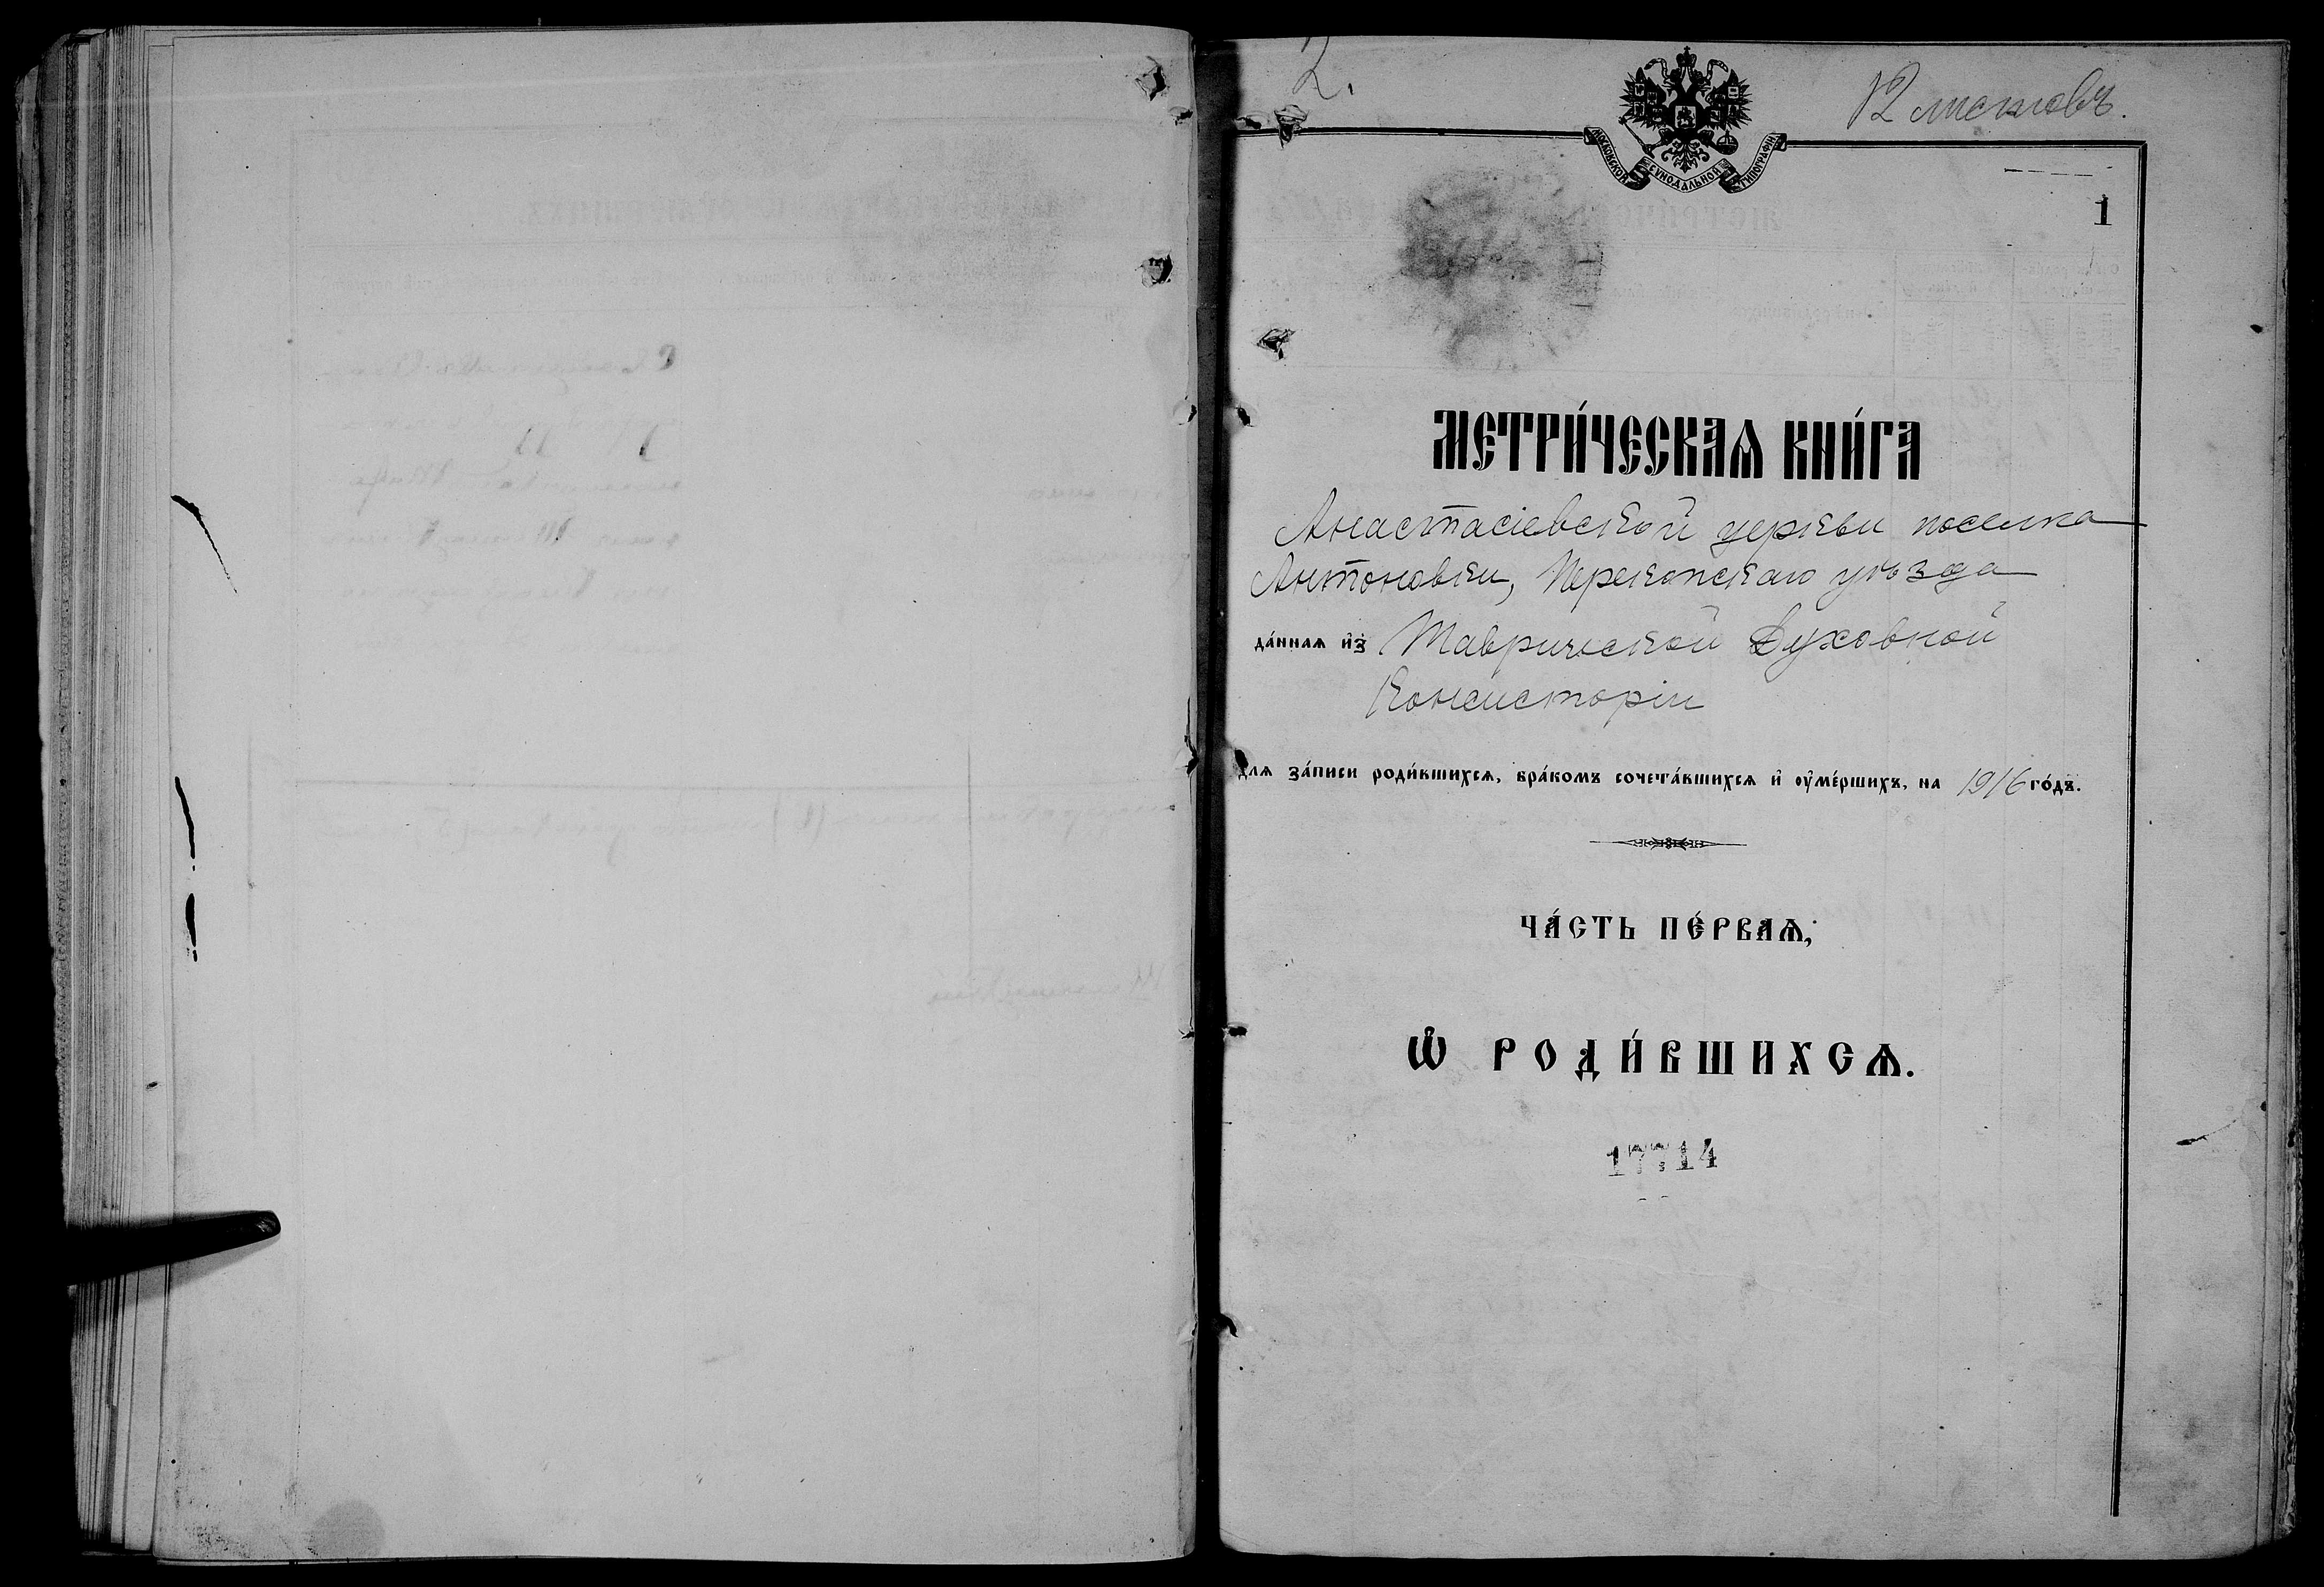 2.
12 листовъ.
МОСКОВСКОЙ СѴНОДАЛЬНОЙ ТИПОГРАФІИ
1
МЕТРИ́ЧЕСКАѦ КНИ́ГА
Анастасіевской церкви поселка
Антоновки, Перекопскаго уѣзда
да́ннаѧ и҆з Таврической Духовной
Консисторіи
для за́писи роди́вшихсѧ, бра́комъ сочета́вшихсѧ и҆ оу҆ме́ршихъ, на 1916 го́дъ.
ЧА́СТЬ ПЕ́РВАѦ,
Ѡ҆ РОДИ́ВШИХСѦ.
17714